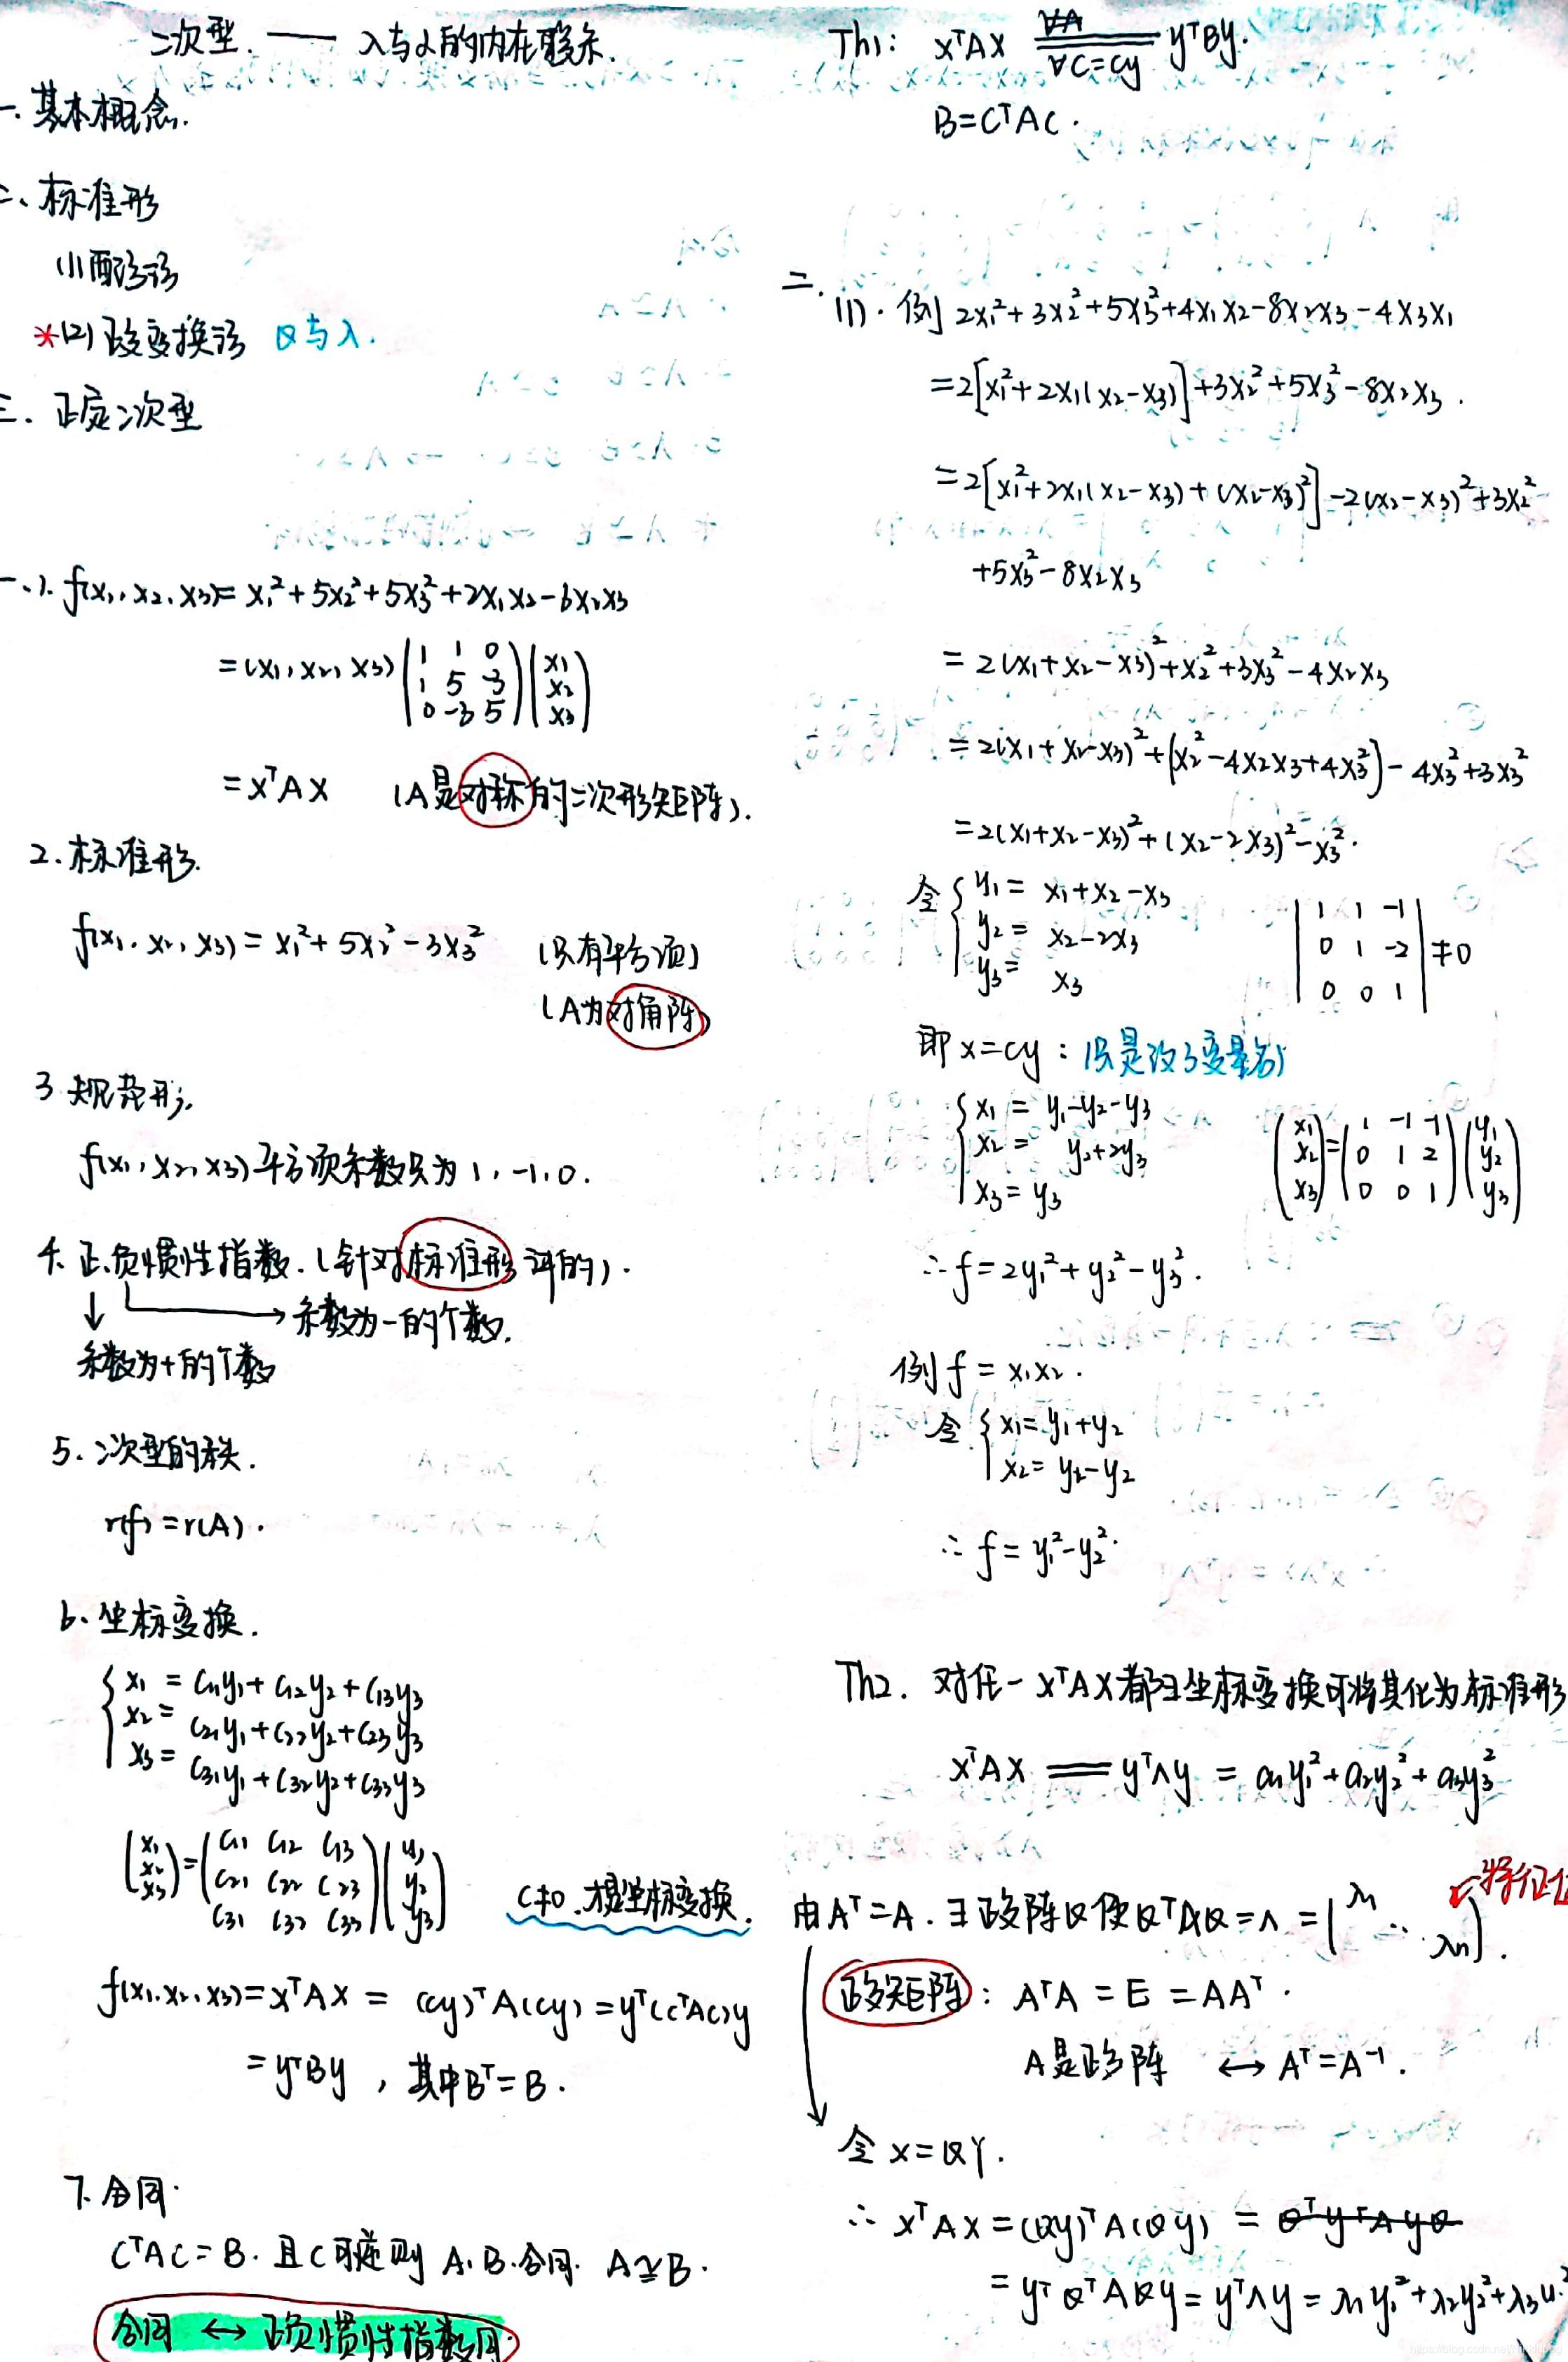 二次型. —— λ与α的内在联系.
一. 基本概念.
二、标准形
(1) 配方法
*(2) 正交变换法 Q与λ.
三. 正定二次型
一、1. f(x₁, x₂, x₃) = x₁² + 5x₂² + 5x₃² + 2x₁x₂ - 6x₂x₃
= (x₁, x₂, x₃) ( 1 1 0 ) ( x₁ )
1 5 -3 x₂
0 -3 5 x₃
= xᵀAx (A是对称的二次形矩阵).
2. 标准形.
f(x₁, x₂, x₃) = x₁² + 5x₂² - 3x₃² (只有平方项)
(A为对角阵)
3 规范形.
f(x₁, x₂, x₃) 平方项系数只为 1, -1, 0.
4. 正、负惯性指数. (针对标准形讲的).
↓ → 系数为-的个数.
系数为+的个数
5. 二次型的秩.
r(f) = r(A).
6. 坐标变换.
x₁ = c₁₁y₁ + c₁₂y₂ + c₁₃y₃
x₂ = c₂₁y₁ + c₂₂y₂ + c₂₃y₃
x₃ = c₃₁y₁ + c₃₂y₂ + c₃₃y₃
( x₁ ) = ( c₁₁ c₁₂ c₁₃ ) ( y₁ )
x₂ c₂₁ c₂₂ c₂₃ y₂
x₃ c₃₁ c₃₂ c₃₃ y₃
C≠0, 才是坐标变换.
f(x₁, x₂, x₃) = xᵀAx = (cy)ᵀA(cy) = yᵀ(CᵀAC)y
= yᵀBy , 其中Bᵀ = B.
7. 合同.
CᵀAC = B. 且C可逆则 A. B. 合同. A≃B.
合同 ↔ 正负惯性指数同.
Th1: xᵀAx ==== yᵀBy.
∀A
∀C=Cy
B=CᵀAC.
二. (1). 例 2x₁² + 3x₂² + 5x₃² + 4x₁x₂ - 8x₂x₃ - 4x₃x₁
= 2[x₁² + 2x₁(x₂-x₃)] + 3x₂² + 5x₃² - 8x₂x₃.
= 2[x₁² + 2x₁(x₂-x₃) + (x₂-x₃)²] - 2(x₂-x₃)² + 3x₂²
+ 5x₃² - 8x₂x₃
= 2(x₁+x₂-x₃)² + x₂² + 3x₃² - 4x₂x₃
= 2(x₁+x₂-x₃)² + (x₂² - 4x₂x₃ + 4x₃²) - 4x₃² + 3x₃²
= 2(x₁+x₂-x₃)² + (x₂-2x₃)² - x₃².
令 { y₁ = x₁+x₂-x₃ | 1 1 -1 |
y₂ = x₂-2x₃ | 0 1 -2 | ≠0
y₃ = x₃ | 0 0 1 |
即 x=cy : (只是改了变量名)
x₁ = y₁-y₂-y₃ ( x₁ ) = ( 1 -1 -1 ) ( y₁ )
x₂ = y₂+2y₃ x₂ 0 1 2 y₂
x₃ = y₃ x₃ 0 0 1 y₃
∴ f = 2y₁² + y₂² - y₃².
例 f = x₁x₂.
令 { x₁ = y₁+y₂
x₂ = y₁-y₂
∴ f = y₁² - y₂².
Th2. 对任一 xᵀAx 都∃坐标变换可将其化为标准形
xᵀAx == yᵀΛy = a₁y₁² + a₂y₂² + a₃y₃²
特征值
由Aᵀ=A. ∃正交阵Q使QᵀAQ=Λ = ( λ₁ ⋱ λn ).
正交矩阵: AᵀA = E = AAᵀ.
A是正交阵 ↔ Aᵀ=A⁻¹.
令 x=QY.
∴ xᵀAx = (Qy)ᵀA(Qy) = QᵀyᵀAyQ
= yᵀQᵀAQy = yᵀΛy = λ₁y₁² + λ₂y₂² + λ₃y₃²